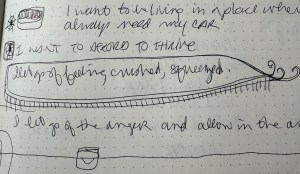 I want to be living in a place where
always need my CAR
I WANT TO TO THRIVE
let go of feeling crushed, squeezed.
I let go of the anger and allow in the